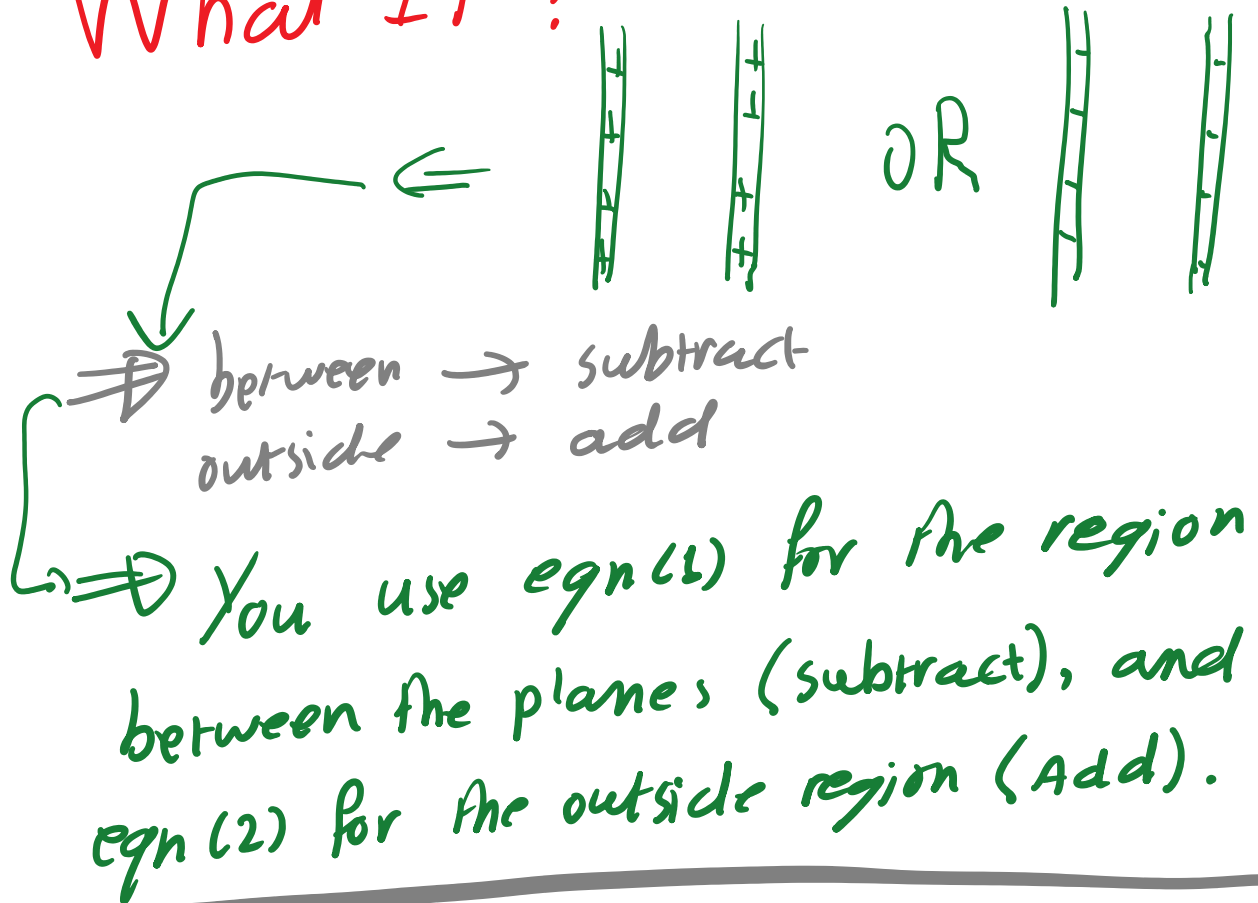 What If ?
OR
⇒ between → subtract
outside → add
⇒ You use eqn(1) for the region
between the planes (subtract), and
eqn (2) for the outside region (Add).